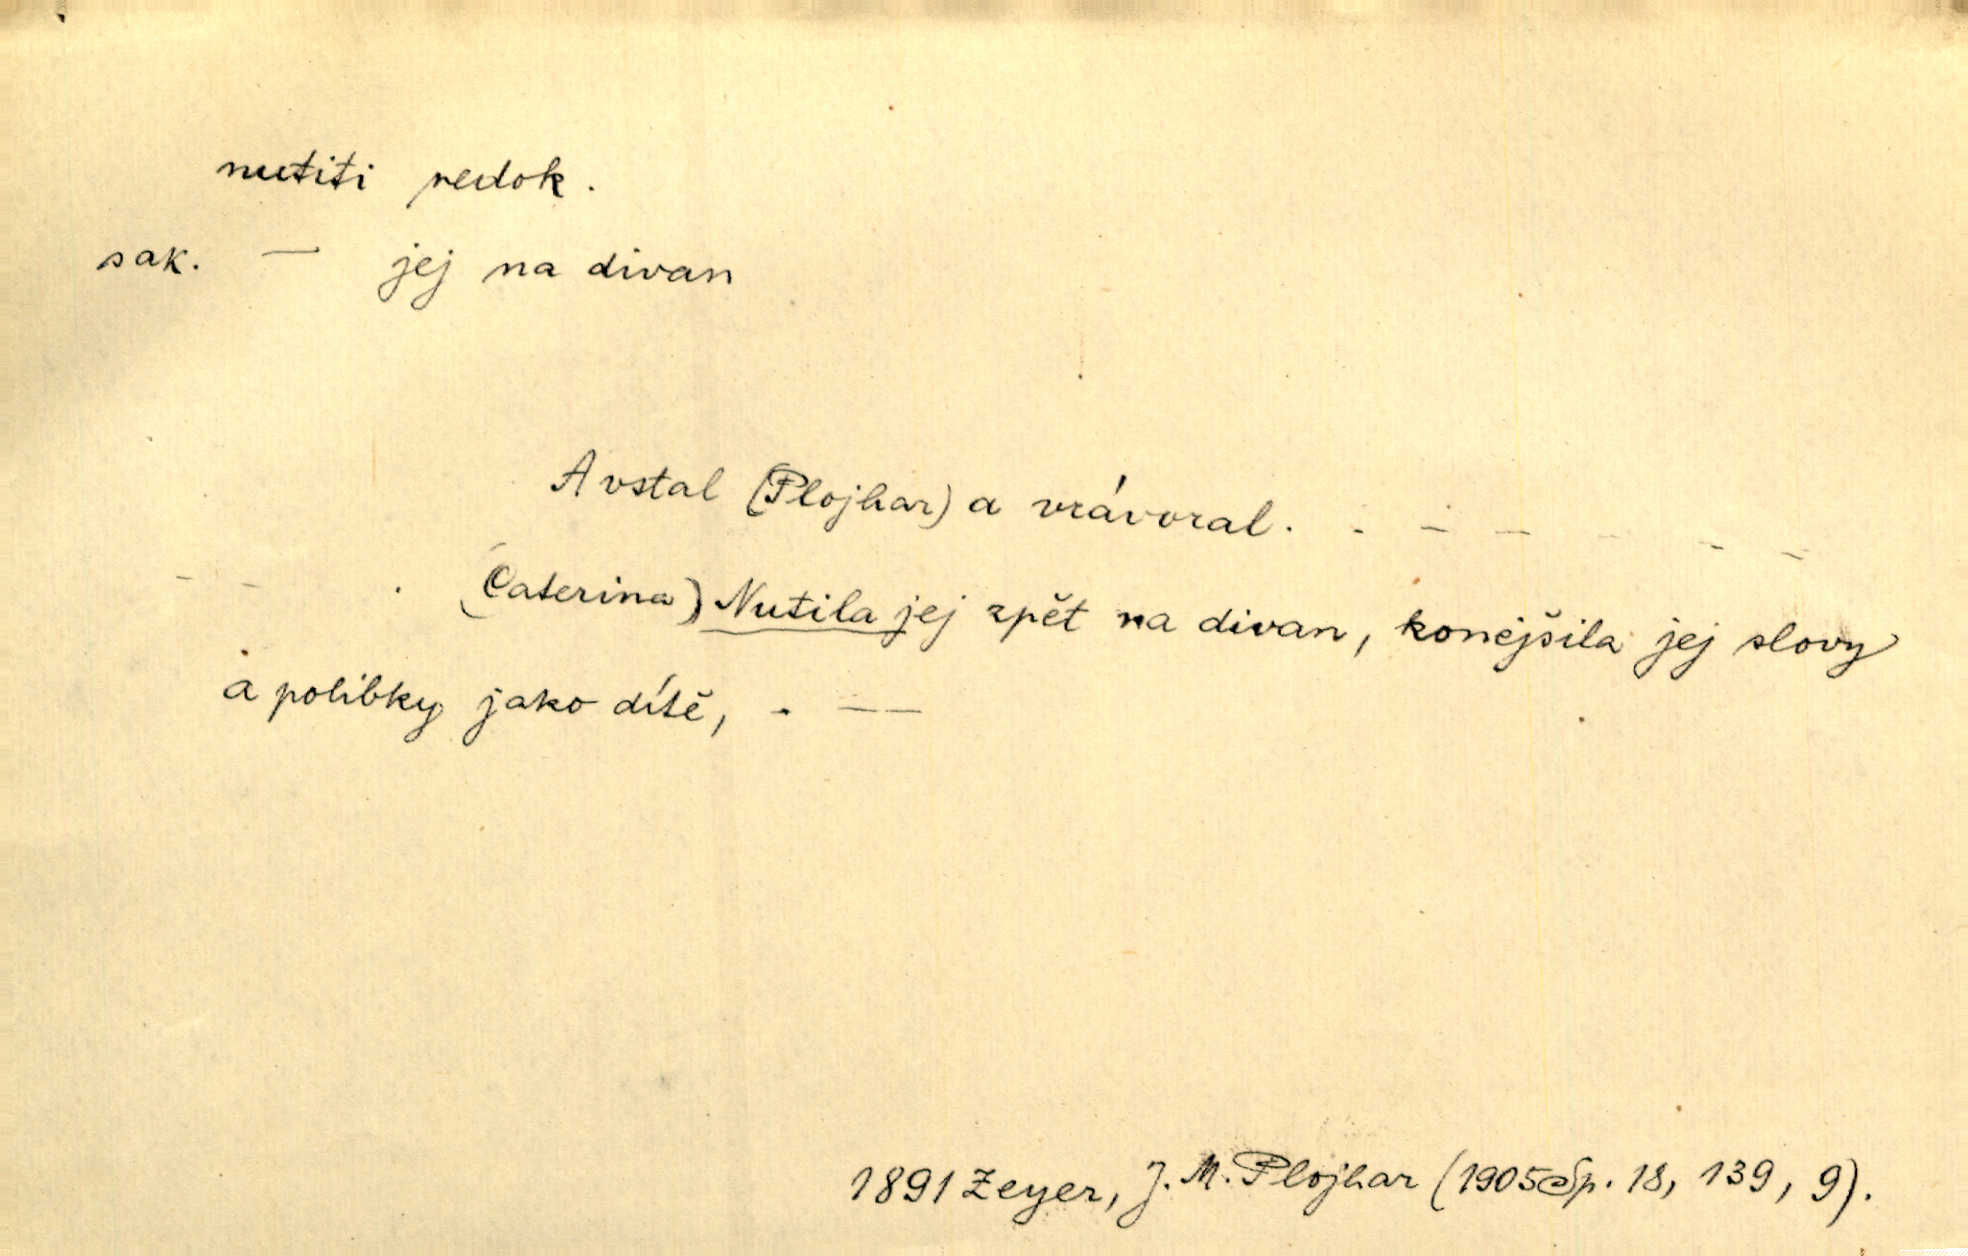 nutiti nedok.
sak. — jej na divan
A vstal (Plojhar) a vrávoral. . – – – – –
– – . (Caterina) Nutila jej zpět na divan, konejšila jej slovy
a polibky jako dítě, . – –
1891 Zeyer, J. M. Plojhar (1905 Sp. 18, 139, 9).